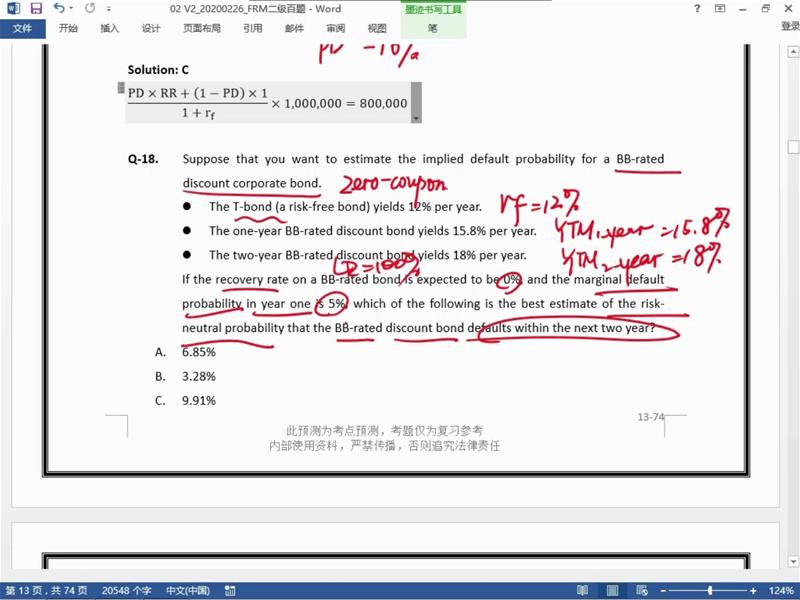 02 V2_20200226_FRM二级百题 - Word
墨迹书写工具
文件 开始 插入 设计 页面布局 引用 邮件 审阅 视图 笔 登录
PD =10%
Solution: C
PD × RR + (1 − PD) × 1
1 + rf
× 1,000,000 = 800,000
Q-18. Suppose that you want to estimate the implied default probability for a BB-rated
discount corporate bond. zero-coupon
● The T-bond (a risk-free bond) yields 12% per year. rf=12%
● The one-year BB-rated discount bond yields 15.8% per year. YTM1-year=15.8%
● The two-year BB-rated discount bond yields 18% per year. YTM2-year=18%
LR=100%
If the recovery rate on a BB-rated bond is expected to be 0%, and the marginal default
probability in year one is 5%, which of the following is the best estimate of the risk-
neutral probability that the BB-rated discount bond defaults within the next two year?
A. 6.85%
B. 3.28%
C. 9.91%
13-74
此预测为考点预测，考题仅为复习参考
内部使用资料，严禁传播，否则追究法律责任
第 13 页，共 74 页 20548 个字 中文(中国) 124%